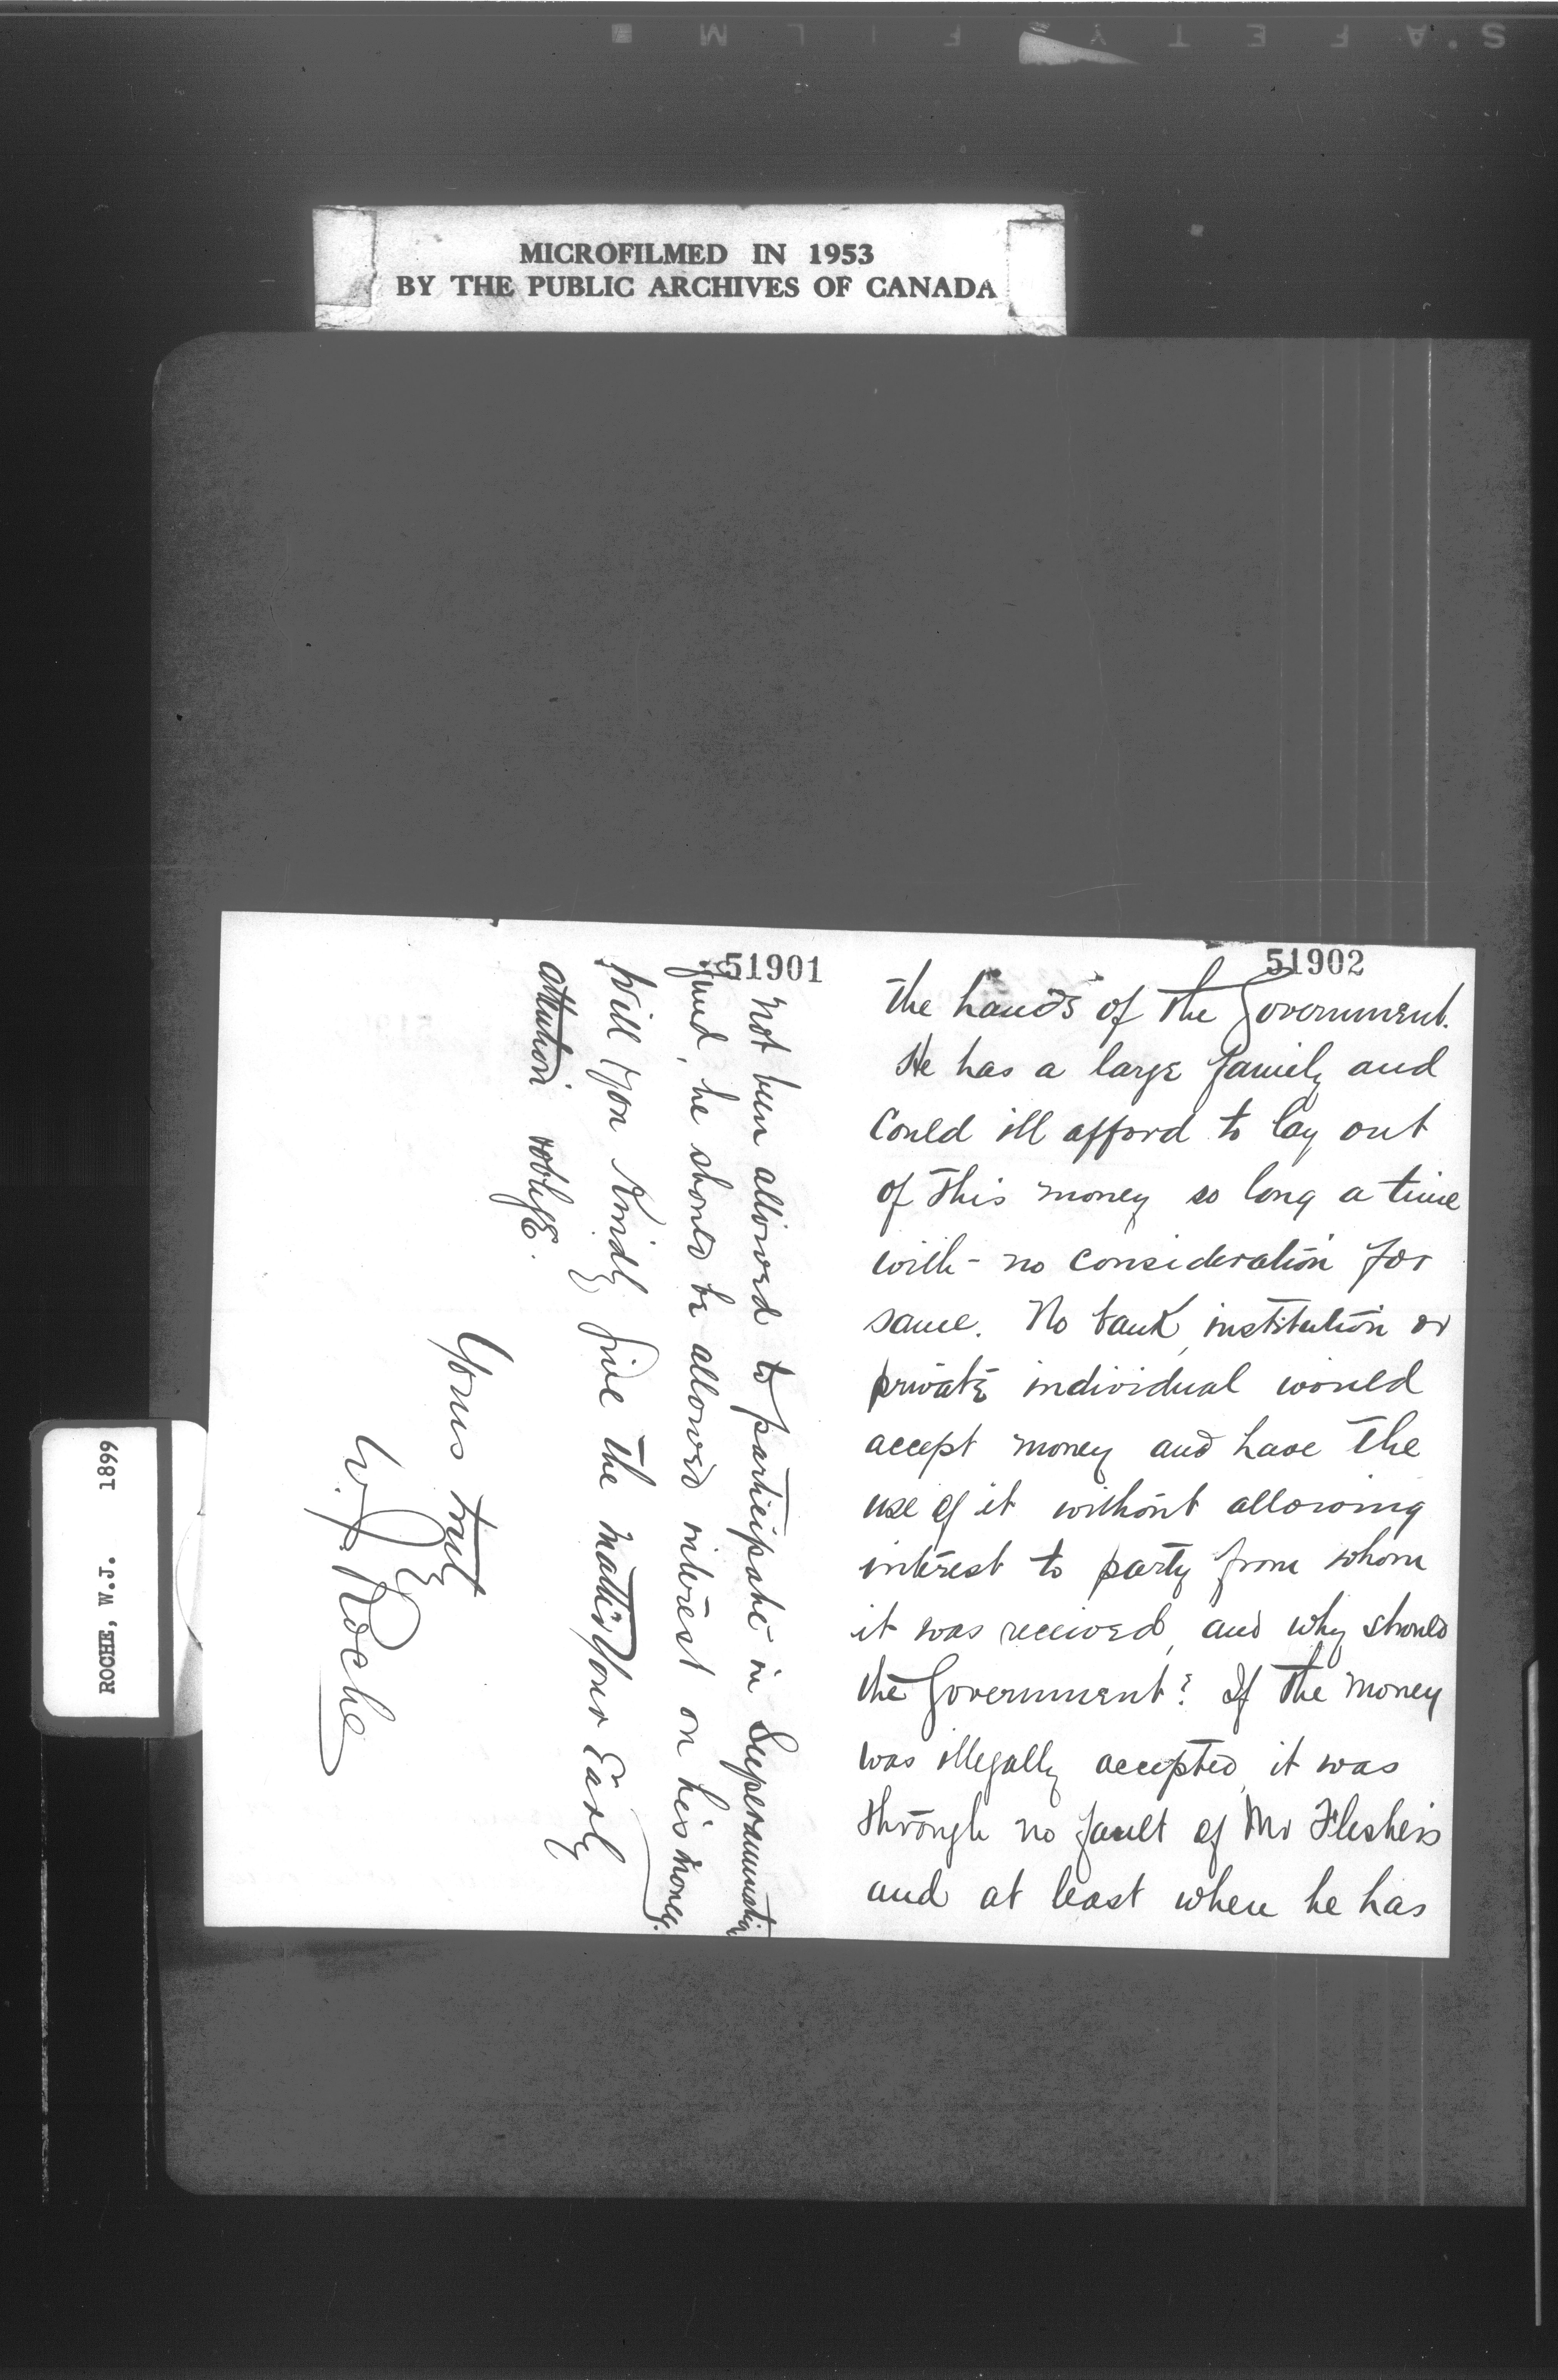 SAFETY FILM
MICROFILMED IN 1953
BY THE PUBLIC ARCHIVES OF CANADA
51902
the hands of the Government.
He has a large family and
could ill afford to lay out
of this money so long a time
with - no consideration for
same. No bank, institution or
private individual would
accept money and have the
use of it without allowing
interest to party from whom
it was received, and why should
the Government? If the money
was illegally accepted, it was
through no fault of Mr Fleshers
and at least when he has
51901
not been allowed to participate in Superannuation
fund, he should be allowed interest on his money.
Will you kindly give the matter your Early
attention & oblige.
Yours truly
W. J. Roche
ROCHE, W.J. 1899